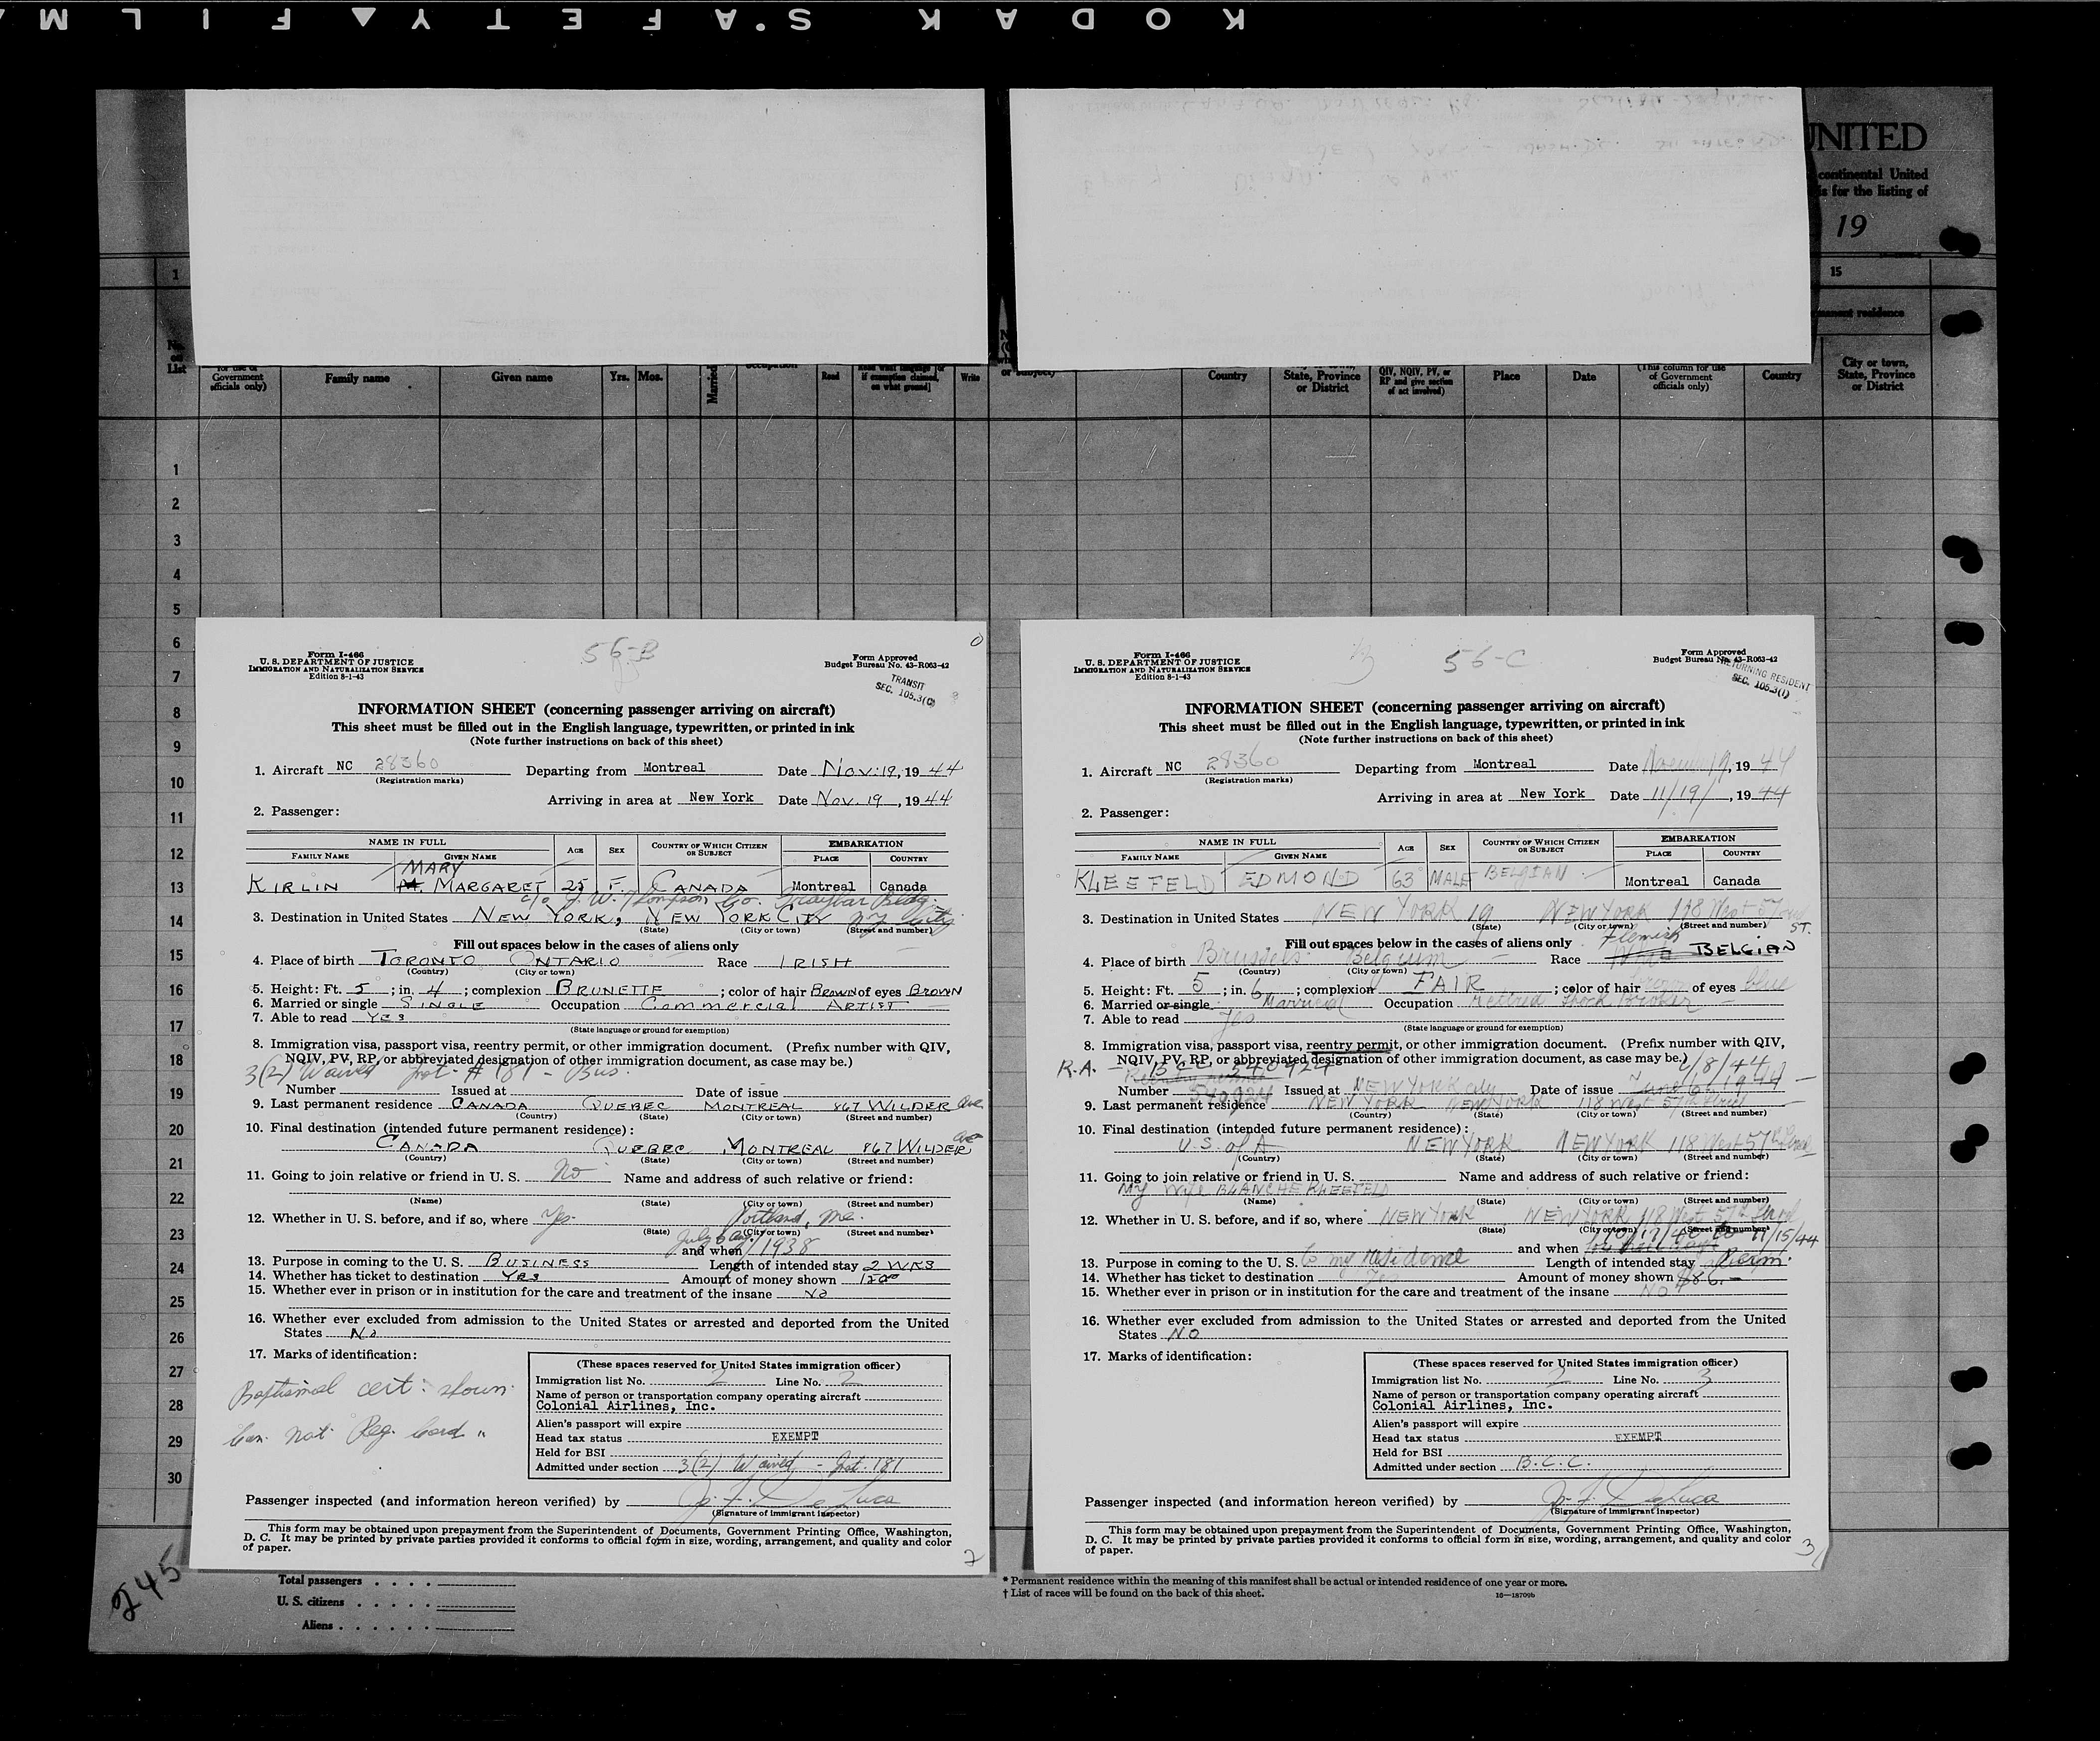 KODAK SAFETY FILM
UNITED
continental United
is for the listing of
19
1
15
permanent residence
No. on List
Government officials only)
Family name
Given name
Yrs.
Mos.
Married
Read
if exemption claimed, on what ground]
Write
Country
State, Province or District
QIV, NQIV, PV, or RP and give section of act involved)
Place
Date
(This column for use of Government officials only)
Country
City or town, State, Province or District
1
2
3
4
5
6
7
8
9
10
11
12
13
14
15
16
17
18
19
20
21
22
23
24
25
26
27
28
29
30
Form I-466
U. S. DEPARTMENT OF JUSTICE
IMMIGRATION AND NATURALIZATION SERVICE
Edition 8-1-43
56-B
Form Approved
Budget Bureau No. 43-R063-42
TRANSIT
SEC. 105.3(C)
INFORMATION SHEET (concerning passenger arriving on aircraft)
This sheet must be filled out in the English language, typewritten, or printed in ink
(Note further instructions on back of this sheet)
1. Aircraft NC 28360 Departing from Montreal Date Nov. 19, 1944
(Registration marks)
Arriving in area at New York Date Nov. 19, 1944
2. Passenger:
NAME IN FULL
FAMILY NAME GIVEN NAME AGE SEX COUNTRY OF WHICH CITIZEN OR SUBJECT EMBARKATION PLACE COUNTRY
MARY
KIRLIN M. MARGARET 25 F. CANADA Montreal Canada
c/o J. W. Thompson Co. Graybar Bldg.
3. Destination in United States NEW YORK, NEW YORK CITY NY City
(State) (City or town) (Street and number)
Fill out spaces below in the cases of aliens only
4. Place of birth TORONTO ONTARIO Race IRISH
(Country) (City or town)
5. Height: Ft. 5; in. 4; complexion BRUNETTE; color of hair BROWN of eyes BROWN
6. Married or single SINGLE Occupation Commercial ARTIST
7. Able to read YES
(State language or ground for exemption)
8. Immigration visa, passport visa, reentry permit, or other immigration document. (Prefix number with QIV,
NQIV, PV, RP, or abbreviated designation of other immigration document, as case may be.)
3(2) Waived Inst. # 181 - Bus.
Number Issued at Date of issue
9. Last permanent residence CANADA QUEBEC MONTREAL 867 WILDER Ave
(Country) (State) (City or town) (Street and number)
10. Final destination (intended future permanent residence):
CANADA QUEBEC MONTREAL 867 WILDER Ave
(Country) (State) (City or town) (Street and number)
11. Going to join relative or friend in U. S. No Name and address of such relative or friend:
(Name) (State) (City or town) (Street and number)
12. Whether in U. S. before, and if so, where Yes Portland, Me.
(State) (City or town) (Street and number)
and when July 1938
13. Purpose in coming to the U. S. BUSINESS Length of intended stay 2 WKS
14. Whether has ticket to destination YES Amount of money shown
15. Whether ever in prison or in institution for the care and treatment of the insane No
16. Whether ever excluded from admission to the United States or arrested and deported from the United
States No
17. Marks of identification:
Baptismal cert. shown
Can. Nat. Reg. Card "
(These spaces reserved for United States immigration officer)
Immigration list No. 2 Line No. 2
Name of person or transportation company operating aircraft
Colonial Airlines, Inc.
Alien's passport will expire
Head tax status EXEMPT
Held for BSI
Admitted under section 3(2) Waived - Inst. 181
Passenger inspected (and information hereon verified) by J. F. DeLuca
(Signature of Immigrant Inspector)
This form may be obtained upon prepayment from the Superintendent of Documents, Government Printing Office, Washington,
D. C. It may be printed by private parties provided it conforms to official form in size, wording, arrangement, and quality and color
of paper.
2
Form I-466
U. S. DEPARTMENT OF JUSTICE
IMMIGRATION AND NATURALIZATION SERVICE
Edition 8-1-43
56-C
Form Approved
Budget Bureau No. 43-R063-42
RETURNING RESIDENT
SEC. 105.3(1)
INFORMATION SHEET (concerning passenger arriving on aircraft)
This sheet must be filled out in the English language, typewritten, or printed in ink
(Note further instructions on back of this sheet)
1. Aircraft NC 28360 Departing from Montreal Date 19, 1944
(Registration marks)
Arriving in area at New York Date 11/19/, 1944
2. Passenger:
NAME IN FULL
FAMILY NAME GIVEN NAME AGE SEX COUNTRY OF WHICH CITIZEN OR SUBJECT EMBARKATION PLACE COUNTRY
KLEEFELD EDMOND 63 MALE BELGIAN Montreal Canada
3. Destination in United States NEW YORK 19 NEW YORK 118 West 57 ST.
(State) (City or town) (Street and number)
Fill out spaces below in the cases of aliens only
Flemish
4. Place of birth Brussels Belgium Race BELGIAN
(Country) (City or town)
5. Height: Ft. 5; in. 6; complexion FAIR; color of hair of eyes blue
6. Married or single Married Occupation retired Stock Broker
7. Able to read Yes
(State language or ground for exemption)
8. Immigration visa, passport visa, reentry permit, or other immigration document. (Prefix number with QIV,
NQIV, PV, RP, or abbreviated designation of other immigration document, as case may be.)
R.A. - B.C.C. 540924 /8/44
Number 540924 Issued at NEW YORK city Date of issue June 6 1944
9. Last permanent residence NEW YORK NEW YORK 118 West 57th Street
(Country) (State) (City or town) (Street and number)
10. Final destination (intended future permanent residence):
U.S. of A NEW YORK NEW YORK 118 West 57th Street
(Country) (State) (City or town) (Street and number)
11. Going to join relative or friend in U. S. Name and address of such relative or friend:
My wife BLANCHE KLEEFELD
(Name) (State) (City or town) (Street and number)
12. Whether in U. S. before, and if so, where NEW YORK NEW YORK 118 West 57th Street
(State) (City or town) (Street and number)
and when 10/17/40 to 11/15/44
13. Purpose in coming to the U. S. to my residence Length of intended stay Perm.
14. Whether has ticket to destination Yes Amount of money shown $86.-
15. Whether ever in prison or in institution for the care and treatment of the insane NO
16. Whether ever excluded from admission to the United States or arrested and deported from the United
States NO
17. Marks of identification:
(These spaces reserved for United States immigration officer)
Immigration list No. 2 Line No. 3
Name of person or transportation company operating aircraft
Colonial Airlines, Inc.
Alien's passport will expire
Head tax status EXEMPT
Held for BSI
Admitted under section B.C.C.
Passenger inspected (and information hereon verified) by J. F. DeLuca
(Signature of Immigrant Inspector)
This form may be obtained upon prepayment from the Superintendent of Documents, Government Printing Office, Washington,
D. C. It may be printed by private parties provided it conforms to official form in size, wording, arrangement, and quality and color
of paper.
3
245
Total passengers . . . .
U. S. citizens . . . . .
Aliens . . . . . .
* Permanent residence within the meaning of this manifest shall be actual or intended residence of one year or more.
† List of races will be found on the back of this sheet.
16—18709b